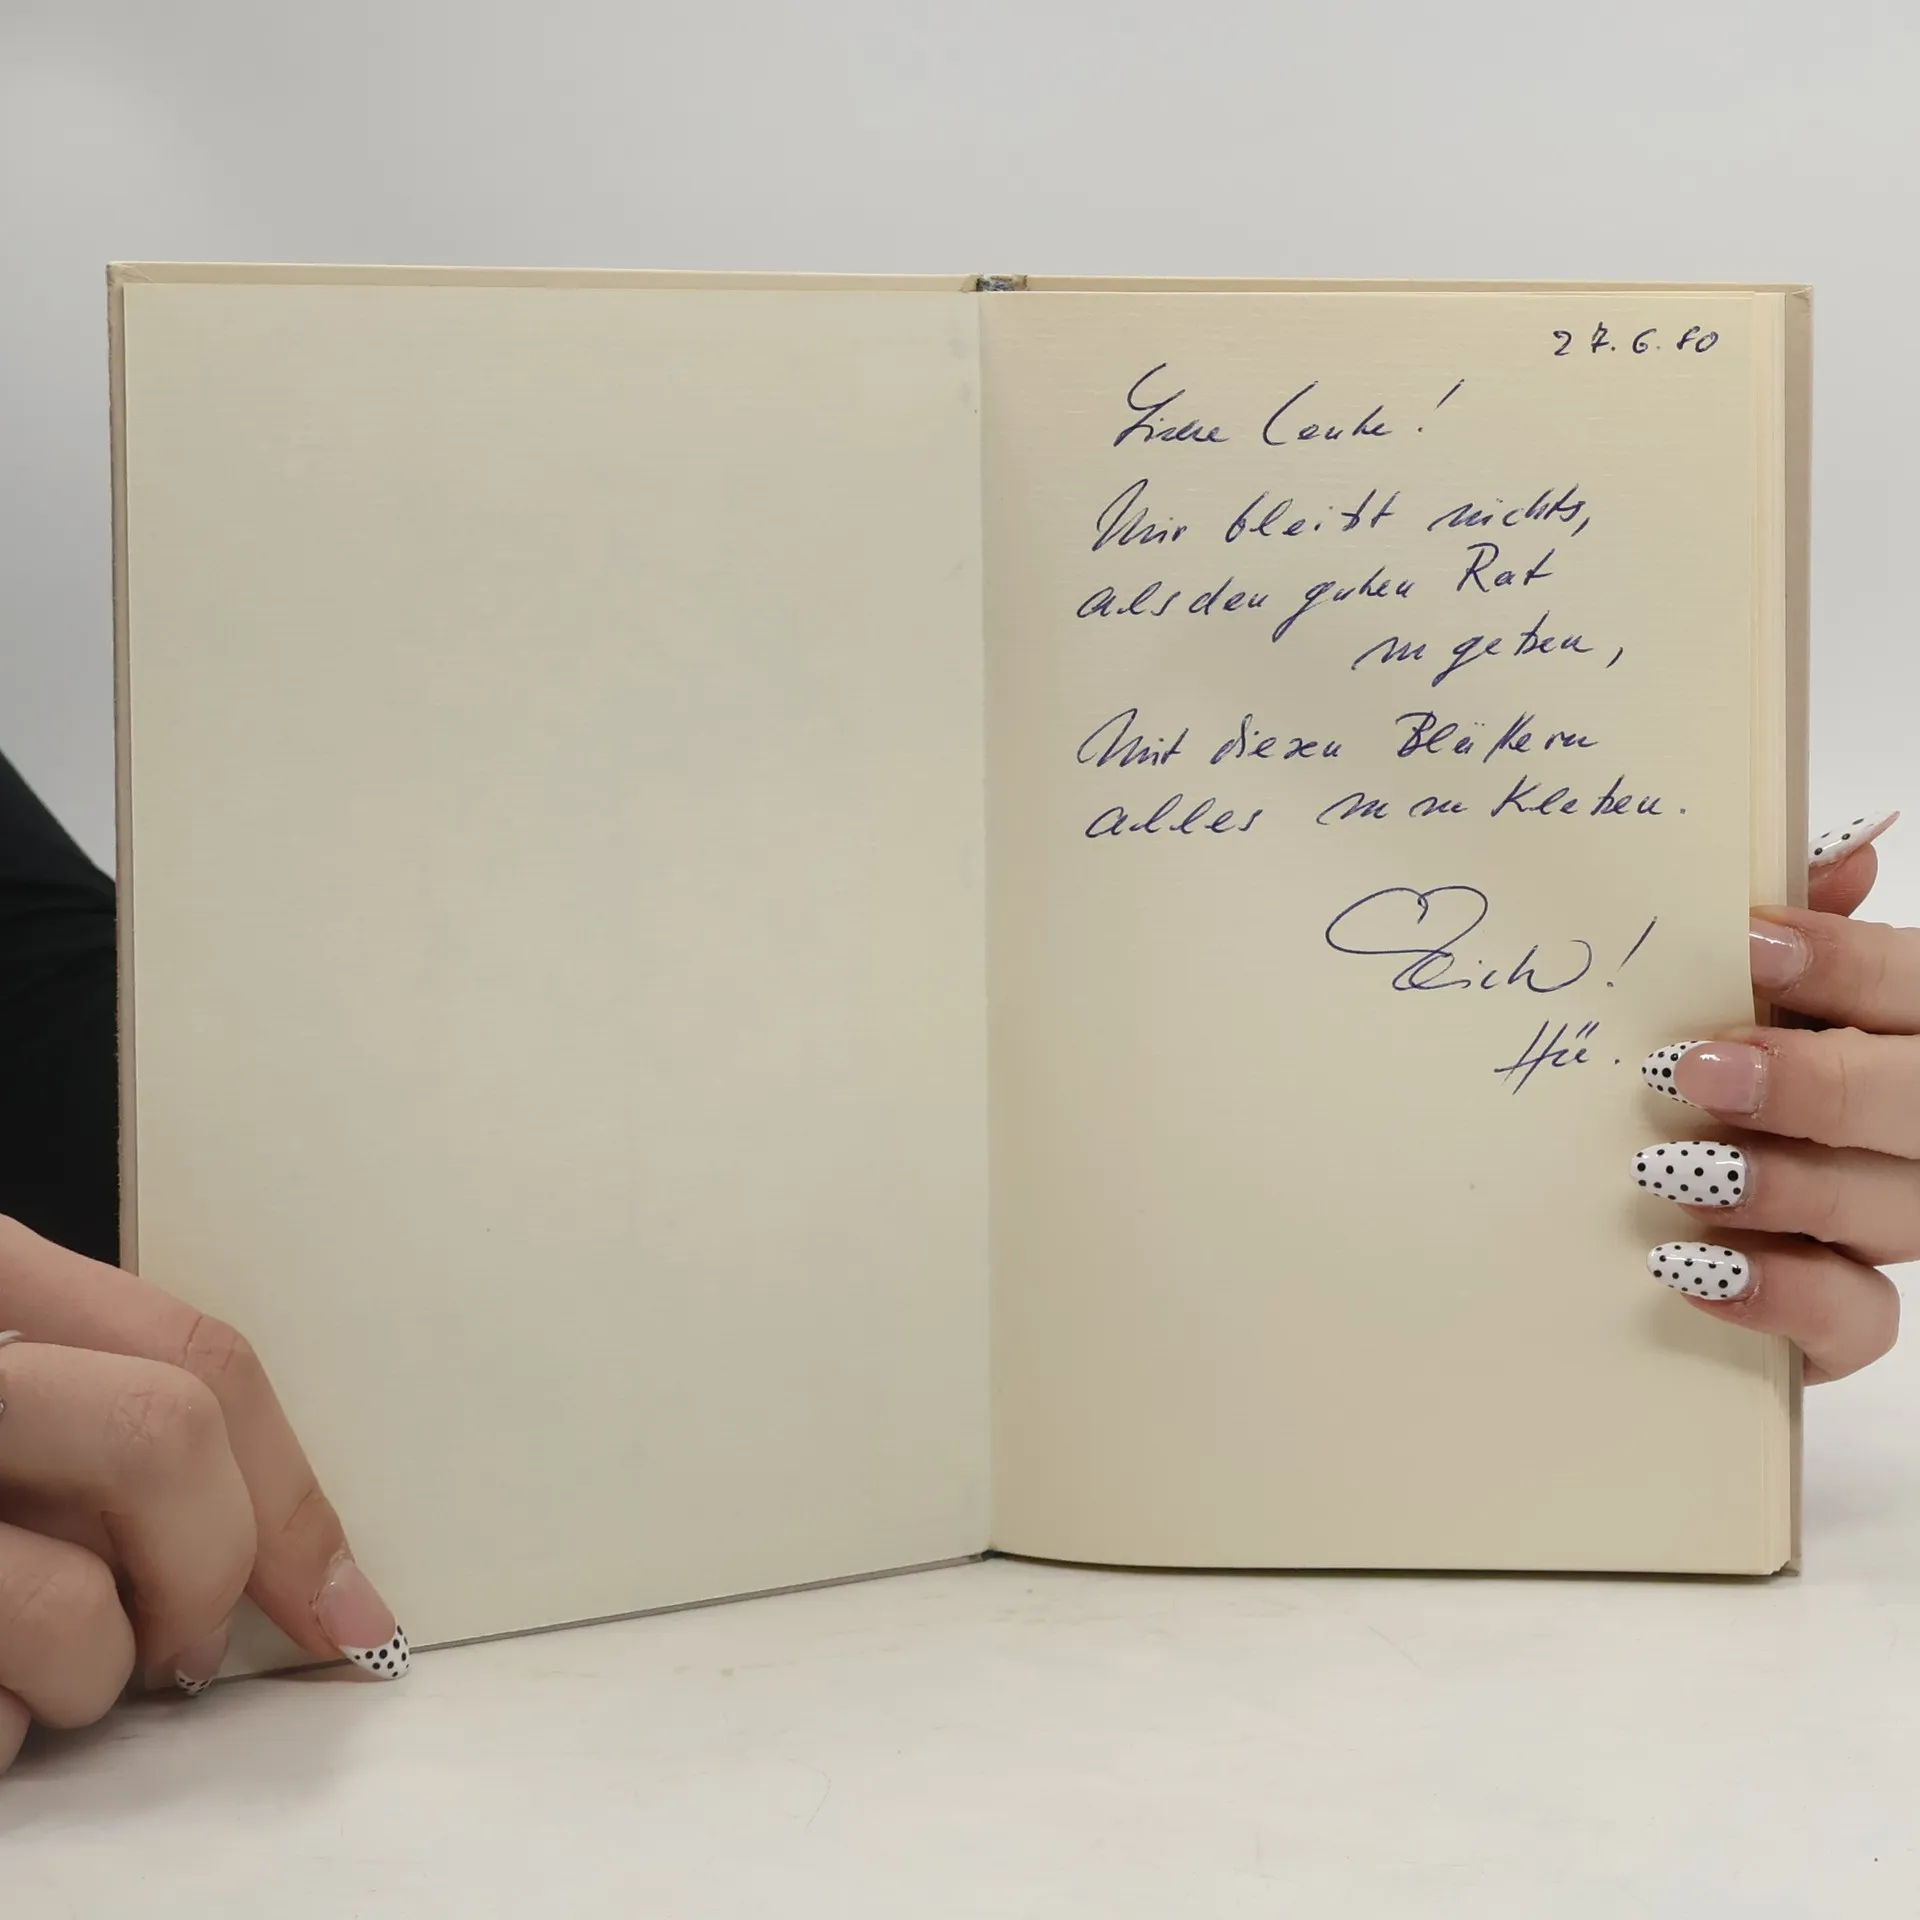 27.6.80
Liebe Leute!
Mir bleibt nichts,
als den guten Rat
zu geben,
Mit diesen Blättern
alles zu zu Kleben.
Hü.